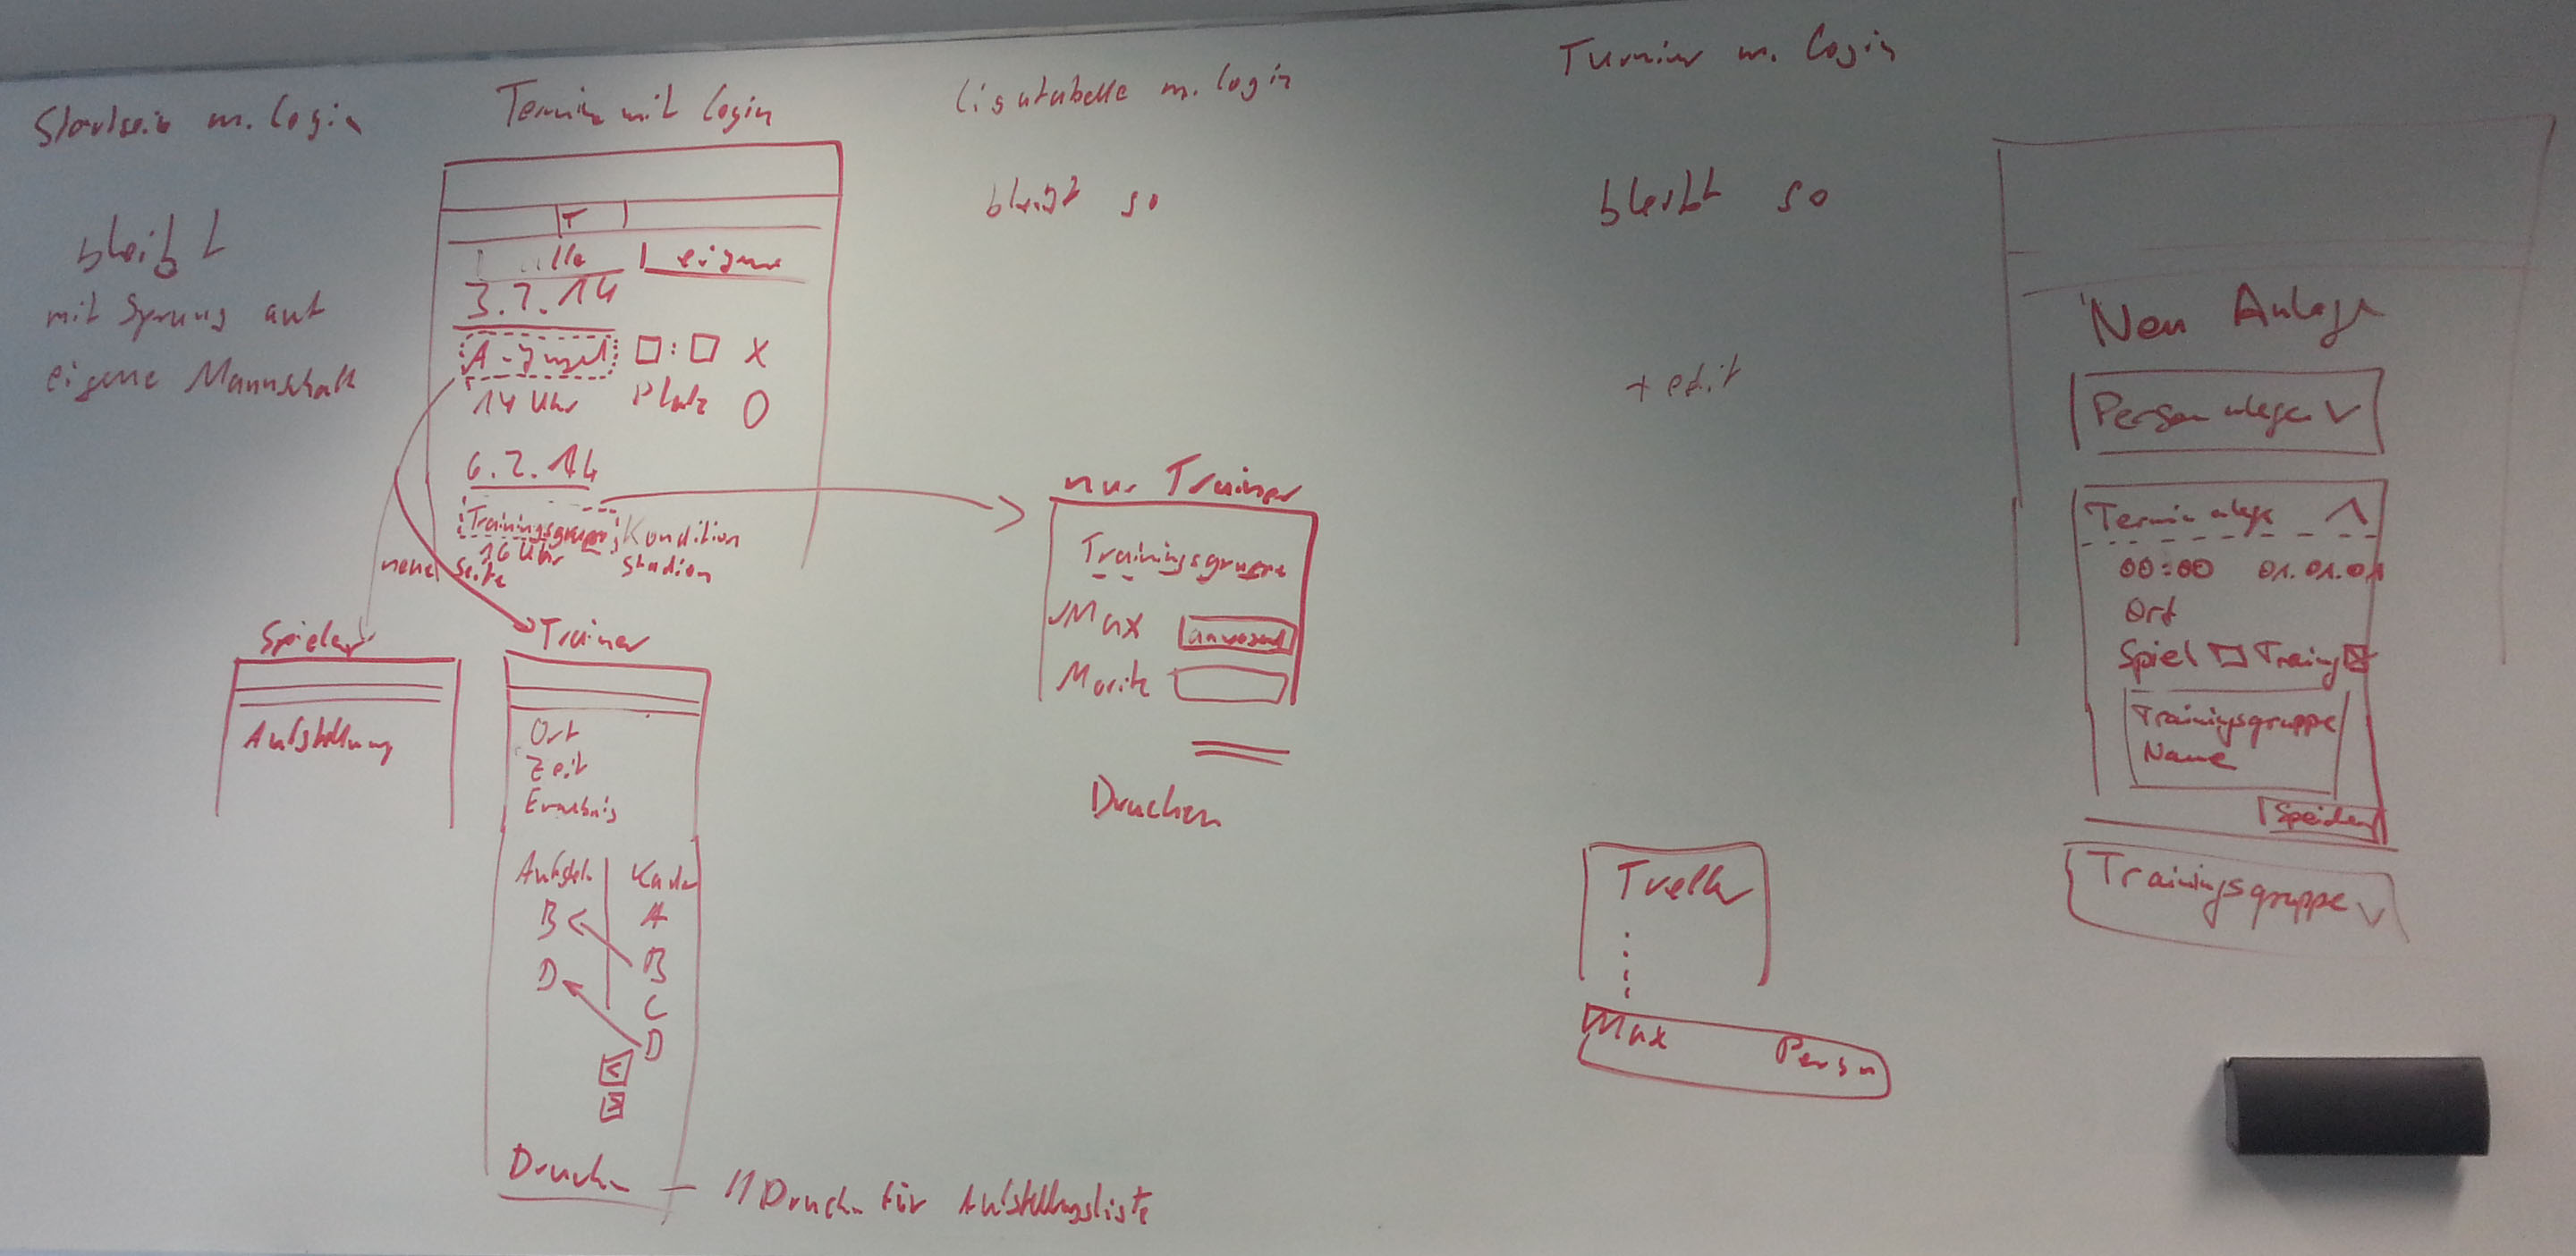 Startseite m. Login
bleibt
mit Sprung auf
eigene Mannschaft
Termin mit Login
T
alle eigene
3.2.14
A-Jugend □:□ X
14 Uhr Platz O
6.2.14
Trainingsgruppe Kondition
16 Uhr Stadion
neue Seite
Spieler
Aufstellung
Trainer
Ort
Zeit
Ergebnis
Aufstell. Kader
B A
D B
C
D
<
>
Drucken
// Drucken für Aufstellungsliste
Ligatabelle m. Login
bleibt so
nur Trainer
Trainingsgruppe
Max anwesend
Moritz
Drucken
Turnier m. Login
bleibt so
+ edit
Max Person
Neu Anlage
Person anlegen V
Termin anlege
00:00 01.01.01
Ort
Spiel □ Training ☒
Trainingsgruppe
Name
Trainingsgruppe V